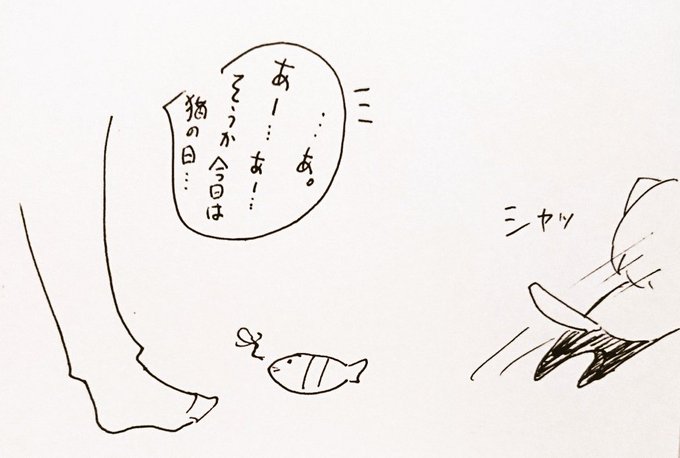 …あ。
あー…あー…
そうか今日は
猫の日…
シャッ